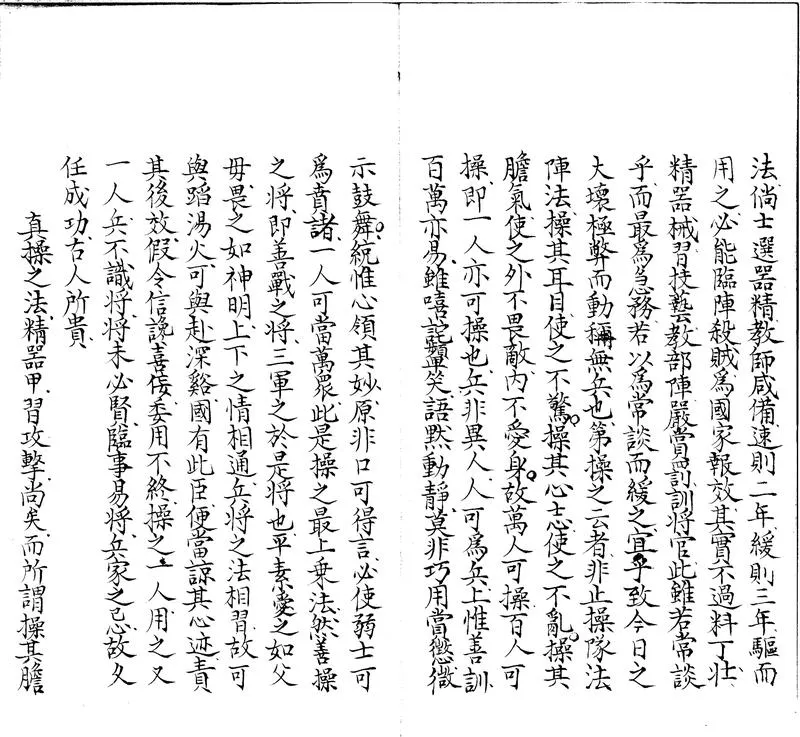 法倘士選器精教師咸備速則二年緩則三年驅而
用之必能臨陣殺賊爲國家報效其實不過料丁壯
精器械習技藝教部陣嚴賞罰訓將官此雖若常談
乎而最爲急務若以爲常談而緩之宜乎致今日之
大壞極弊而動稱無兵也第操之云者非止操隊法
陣法操其耳目使之不驚操其心志使之不亂操其
膽氣使之外不畏敵內不愛身故萬人可操百人可
操即一人亦可操也兵非異人人可爲兵上惟善訓
百萬亦易雖嘻詫顰笑語默動靜莫非巧用賞懲微
示鼓舞統惟心領其妙原非口可得言必使弱士可
爲賁諸一人可當萬衆此是操之最上乘法然善操
之將即善戰之將三軍之於是將也平素愛之如父
毋畏之如神明上下之情相通兵將之法相習故可
與蹈湯火可與赴深谿國有此臣便當諒其心迹責
其後效假令信讒喜侫委用不終操之一人用之又
一人兵不識將將未必賢臨事易將兵家之忌故久
任成功古人所貴
真操之法精器甲習攻擊尚矣而所謂操其膽